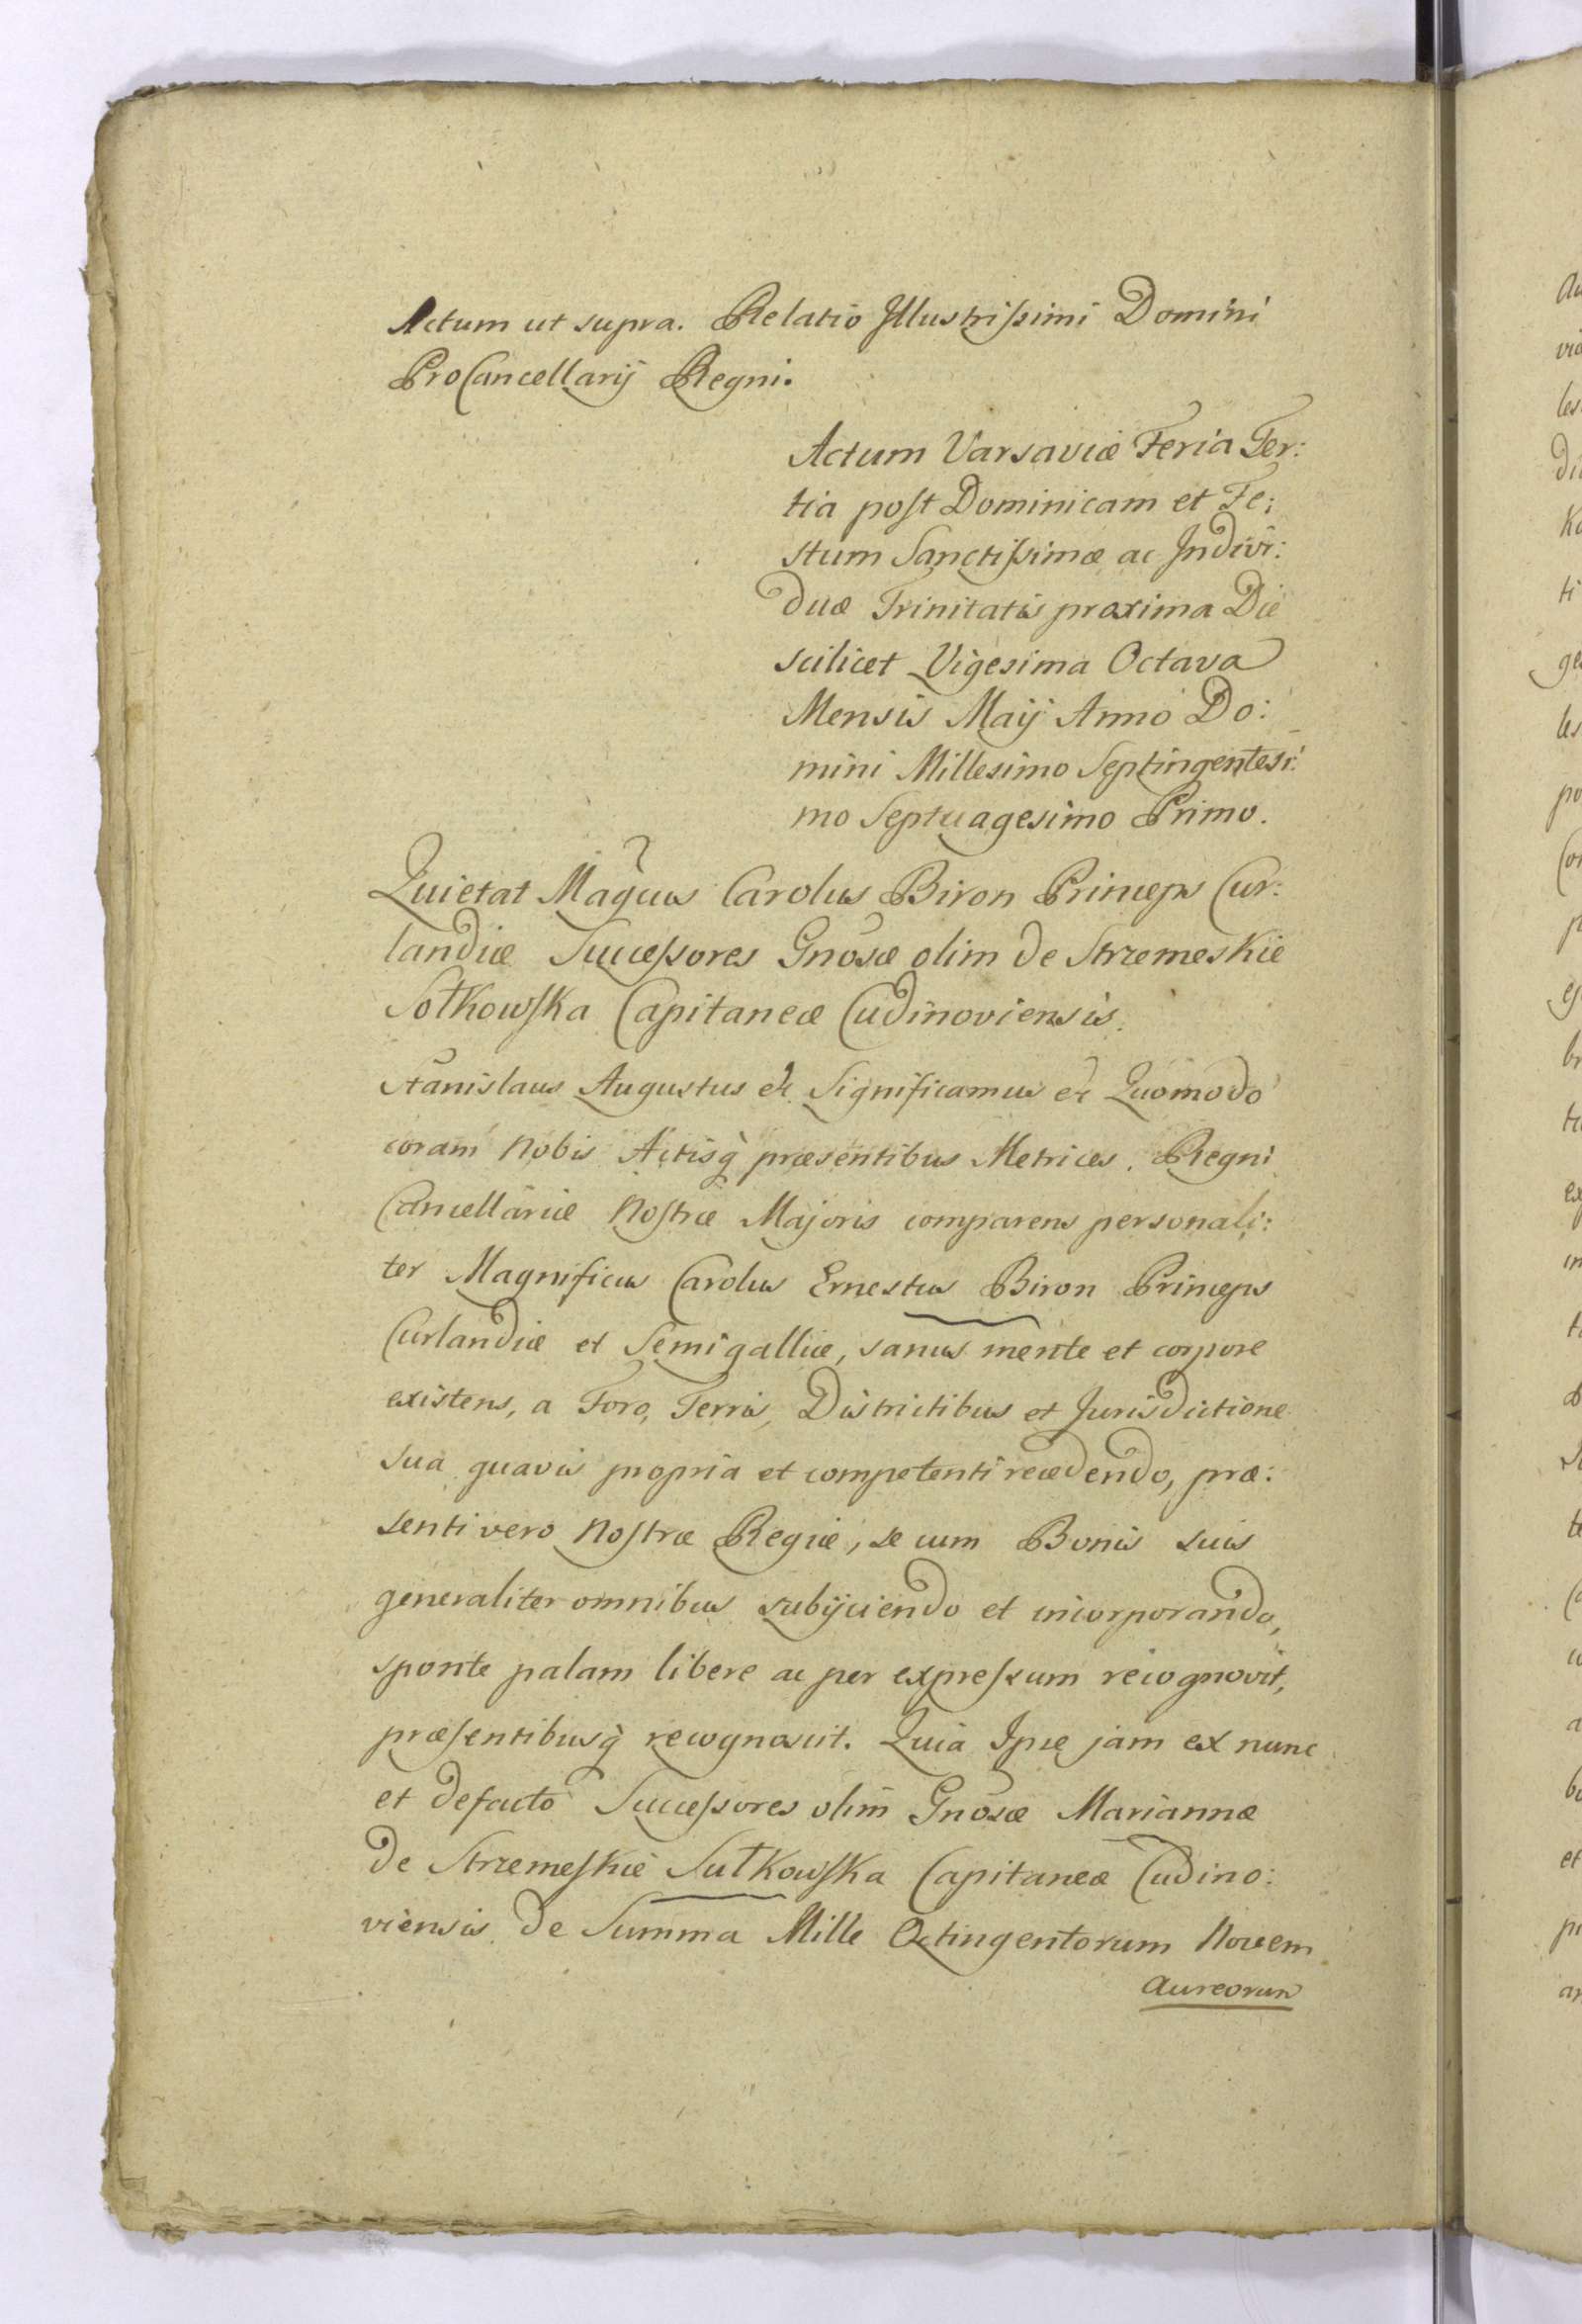 Actum ut supra. Relatio Illustrissimi Domini
ProCancellarij Regni.
Actum Varsaviæ Feria Ter:
tia post Dominicam et Fe:
stum Sanctissimæ ac Indivi:
duæ Trinitatis proxima Die
scilicet Vigesima Octava
Mensis Maij Anno Do:
mini Millesimo Septingentesi:
mo Septuagesimo Primo.
Quietat Magcus Carolus Biron Princeps Cur:
landiæ Successores Gnosæ olim de Strzemeskie
Sołkowska Capitaneæ Cudinoviensis.
Stanislaus Augustus etc. Significamus etc Quomodo
coram Nobis Actisq præsentibus Metrices Regni
Cancellariæ Nostræ Majoris comparens personali:
ter Magnificus Carolus Ernestus Biron Princeps
Curlandiæ et Semigalliæ, sanus mente et corpore
existens, a Foro, Terris, Districtibus et Jurisdictione
sua quavis propria et competenti recedendo, præ:
senti vero Nostræ Regiæ, se cum Bonis suis
generaliter omnibus subijciendo et incorporando,
sponte palam libere ac per expressum recognovit,
præsentibusq recognoscit. Quia Ipse jam ex nunc
et defacto Successores olim Gnosæ Mariannæ
de Strzemeskie Sułkowska Capitaneæ Cudino:
viensis de Summa Mille Octingentorum Novem
Aureorum